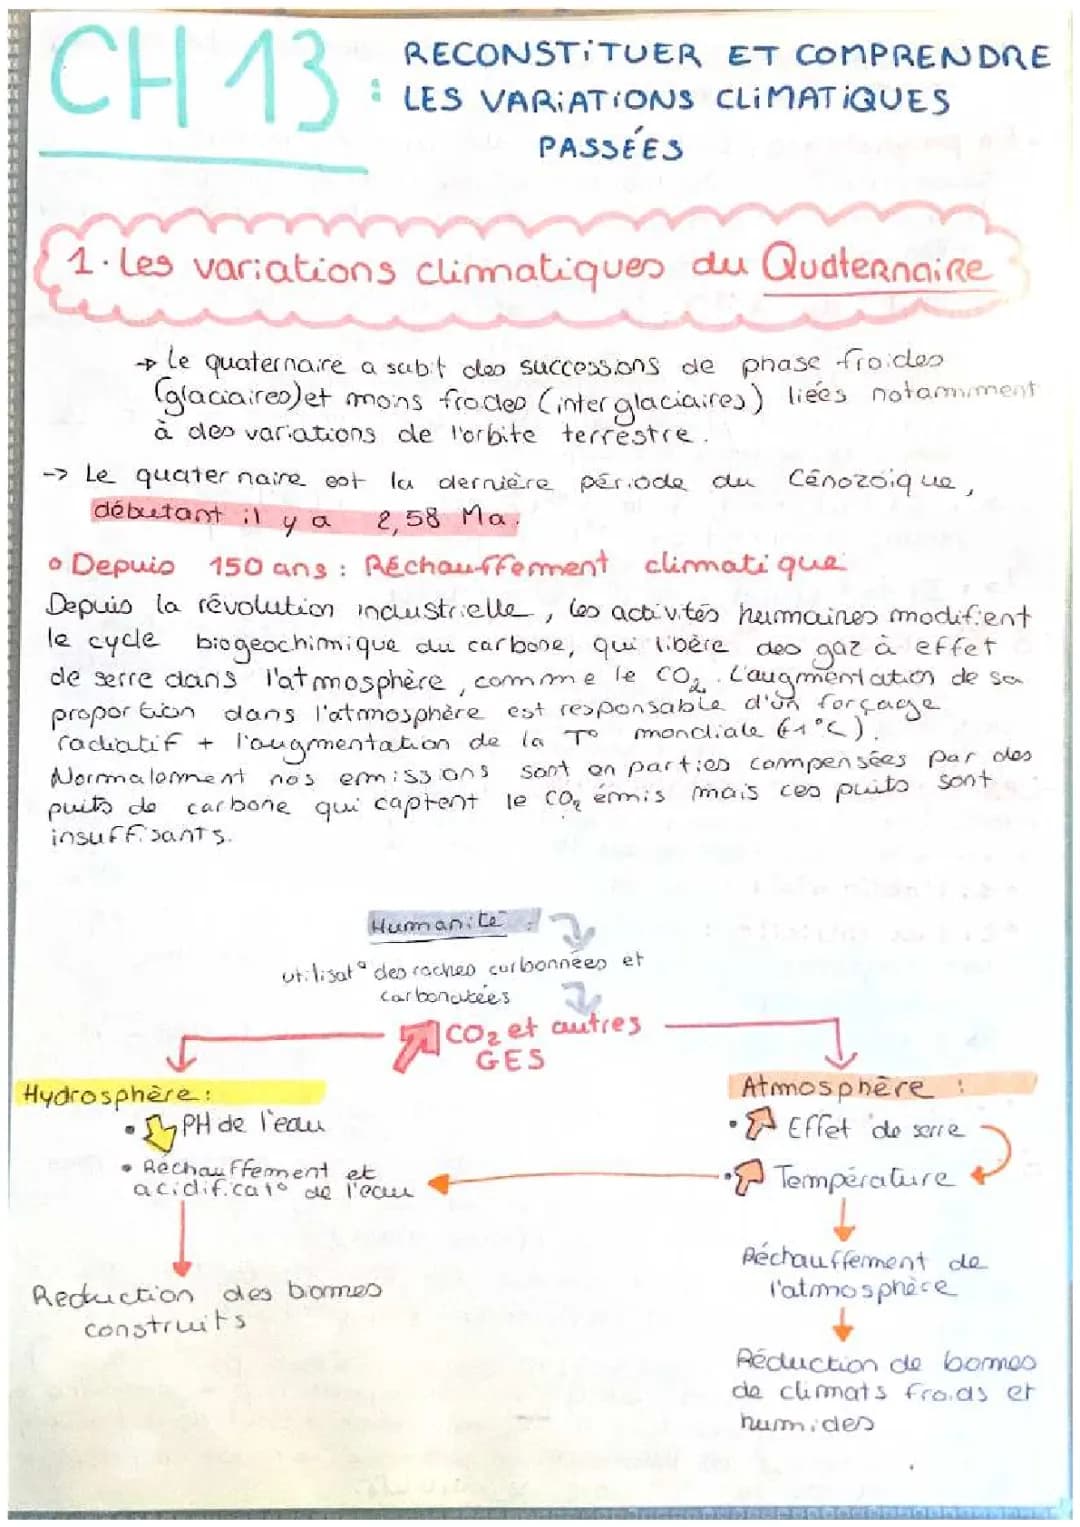 CH 13 : RECONSTITUER ET COMPRENDRE
LES VARIATIONS CLIMATIQUES
PASSÉES
1. Les variations climatiques du Quaternaire
→ Le quaternaire a subit des successions de phase froides
(glaciaires) et moins froides (interglaciaires) liées notamment
à des variations de l'orbite terrestre.
→ Le quaternaire est la dernière période du Cénozoique,
débutant il y a 2,58 Ma.
• Depuis 150 ans : Réchauffement climatique
Depuis la révolution industrielle, les activités humaines modifient
le cycle biogeochimique du carbone, qui libère des gaz à effet
de serre dans l'atmosphère, comme le CO₂. L'augmentation de sa
proportion dans l'atmosphère est responsable d'un forçage
radiatif + l'augmentation de la T° mondiale (+1°C).
Normalement nos emissions sont en parties compensées par des
puits de carbone qui captent le CO₂ émis mais ces puits sont
insuffisants.
Humanité :
utilisat° des roches carbonnées et
carbonatées
CO₂ et autres
GES
Hydrosphère :
• PH de l'eau
• Réchauffement et
acidificat° de l'eau
Reduction des biomes
construits
Atmosphère :
• Effet de serre
• Température
Réchauffement de
l'atmosphère
Réduction de biomes
de climats froids et
humides